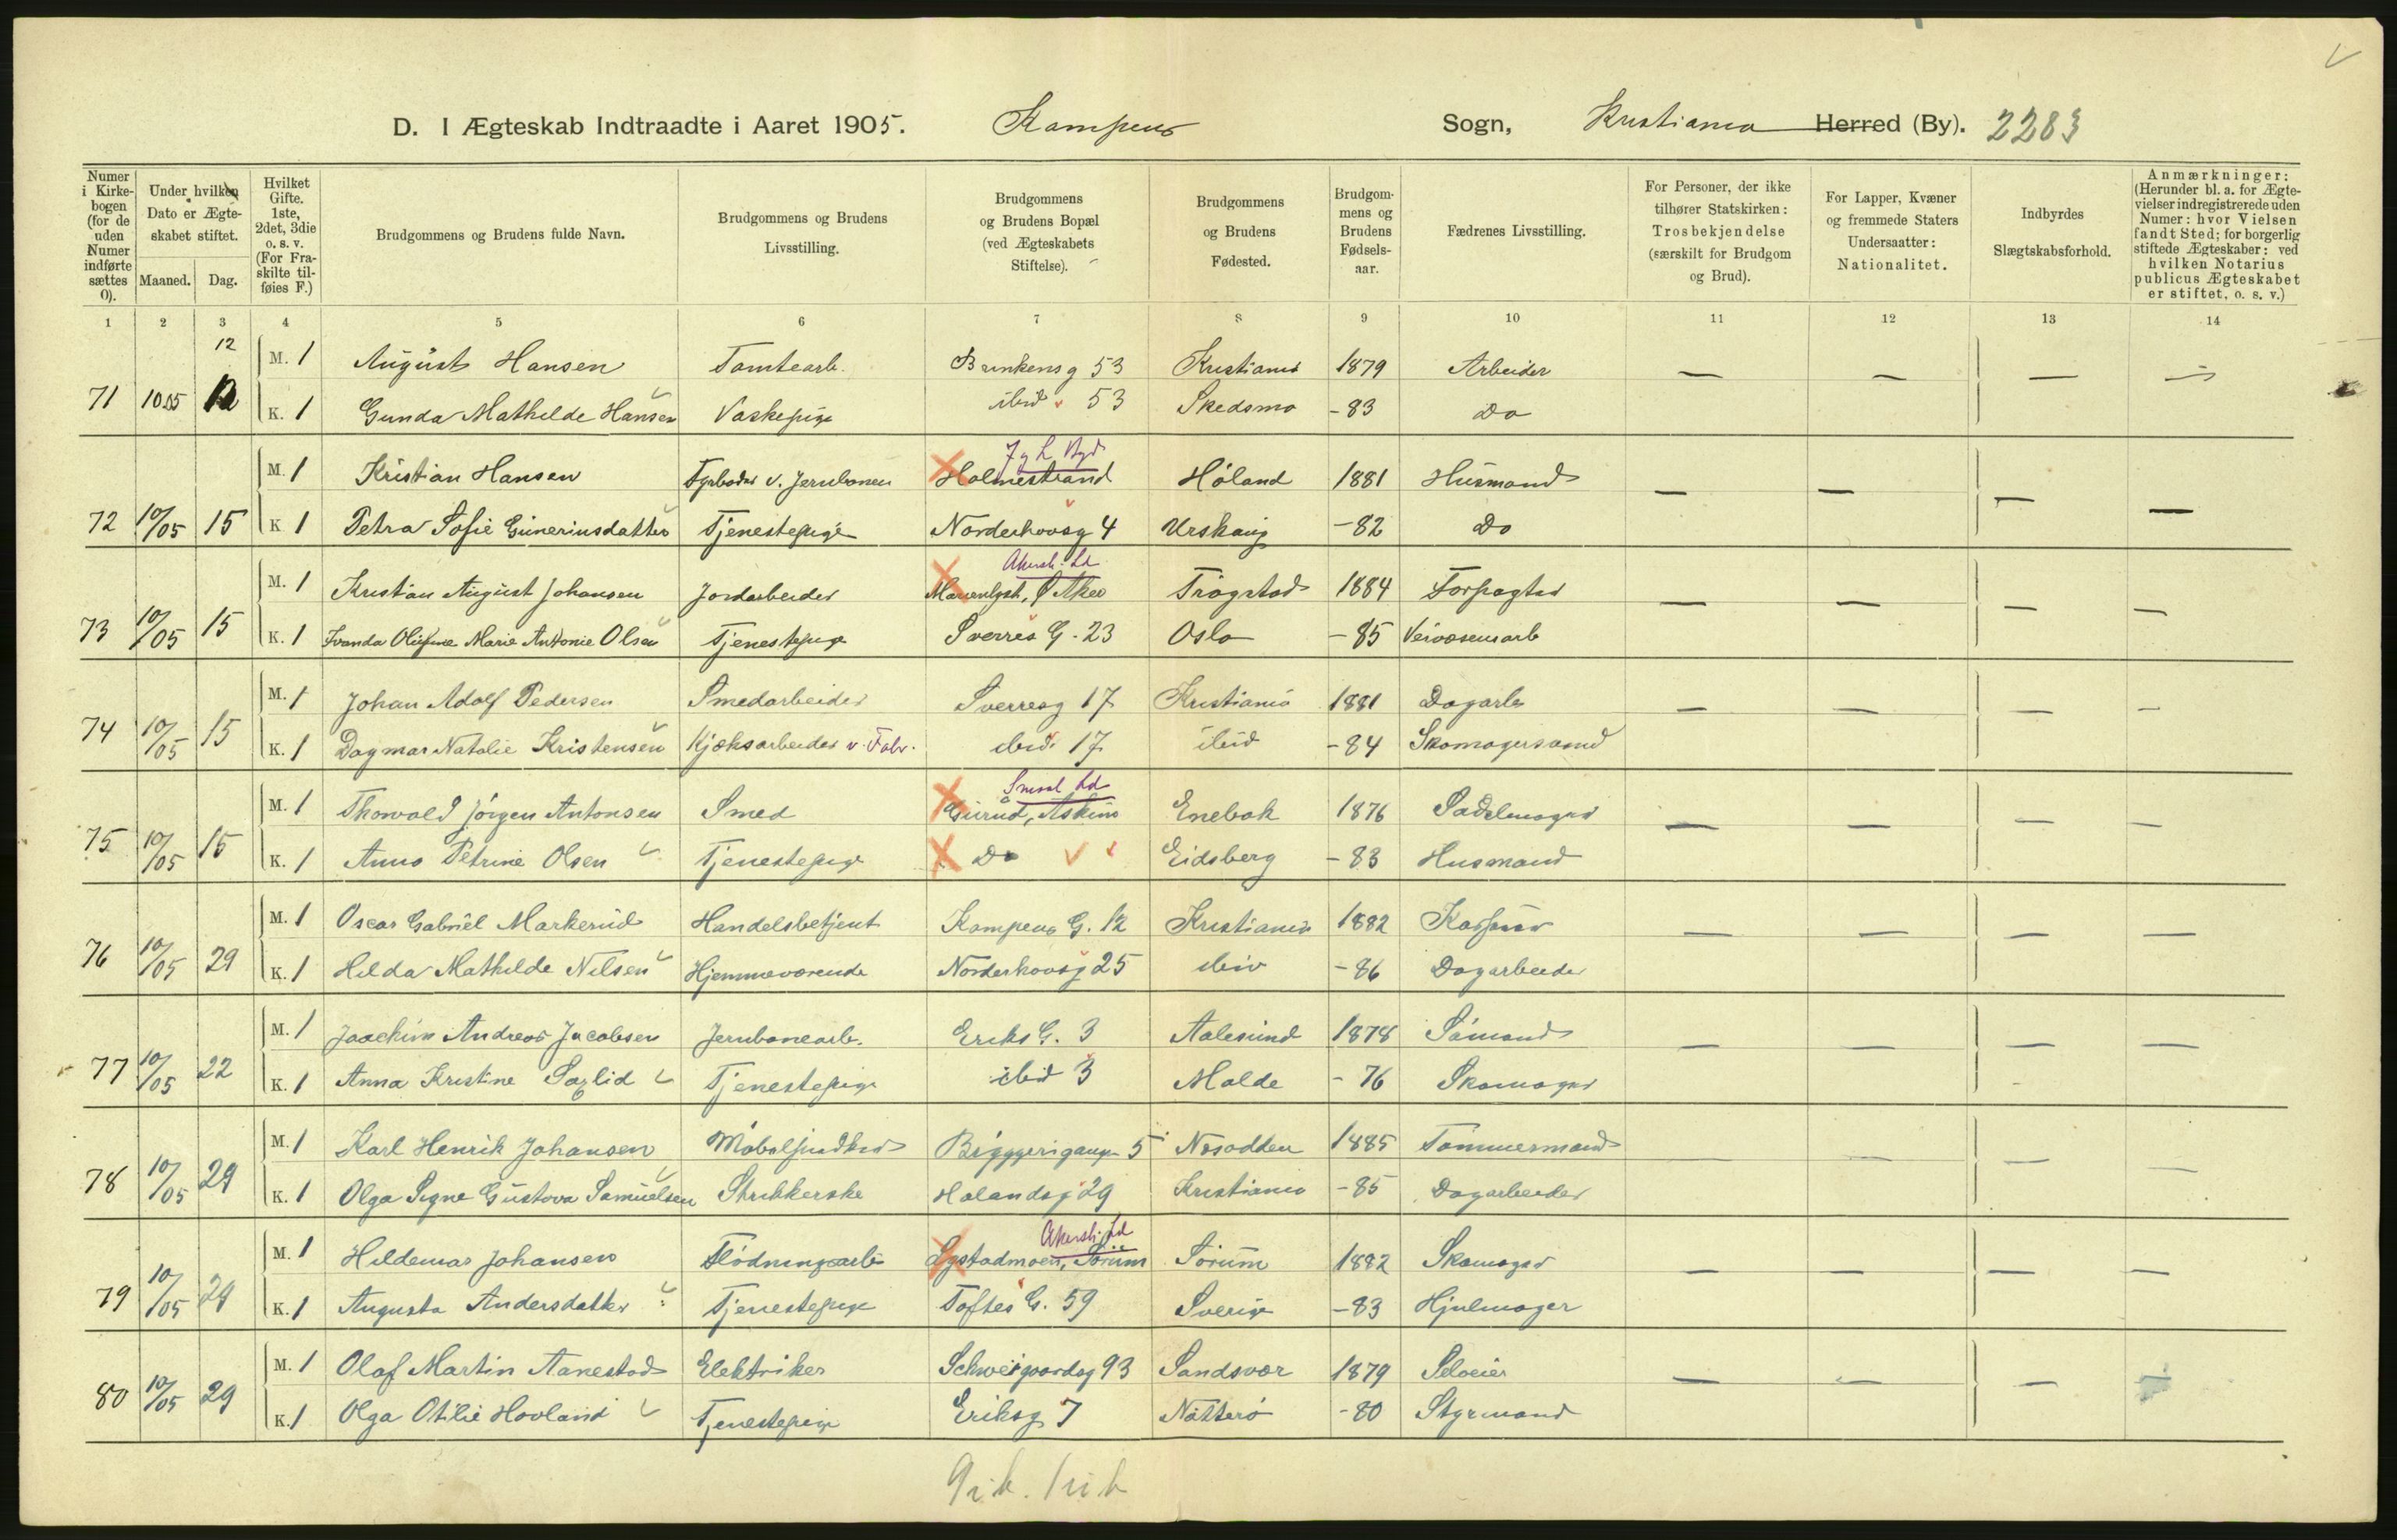 D. I Ægteskab Indtraadte i Aaret 1905. Kampens Sogn, Kristiania Herred (By). 2283
Numer i Kirkebogen (for de uden Numer indførte sættes 0).
Under hvilken Dato er Ægteskabet stiftet.
Maaned. Dag.
Hvilket Gifte. 1ste, 2det, 3die o. s. v. (For Fraskilte tilføies F.)
Brudgommens og Brudens fulde Navn.
Brudgommens og Brudens Livsstilling.
Brudgommens og Brudens Bopæl (ved Ægteskabets Stiftelse).
Brudgommens og Brudens Fødested.
Brudgommens og Brudens Fødselsaar.
Fædrenes Livsstilling.
For Personer, der ikke tilhører Statskirken: Trosbekjendelse (særskilt for Brudgom og Brud).
For Lapper, Kvæner og fremmede Staters Undersaatter: Nationalitet.
Indbyrdes Slægtskabsforhold.
Anmærkninger: (Herunder bl. a. for Ægtevielser indregistrerede uden Numer: hvor Vielsen fandt Sted; for borgerlig stiftede Ægteskaber: ved hvilken Notarius publicus Ægteskabet er stiftet, o. s. v.)
1 2 3 4 5 6 7 8 9 10 11 12 13 14
12
M. 1 August Hansen Tomtearb. Brinkens g 53 Kristiania 1879 Arbeider — — — —
71 10 05 12 K. 1 Gunda Mathilde Hansen Vaskepige ibid 53 Skedsmo -83 Do
M. 1 Kristian Hansen Fyrbøder v. Jernbanen Holmestrand Høland 1881 Husmand — — — —
72 10/05 15 K 1 Petra Sofie Guneriusdatter Tjenestepige Norderhovsg 4 Urskaug -82 Do
Akersh. Ld
M. 1 Kristian August Johansen Jordarbeider Ø Aker Trøgstad 1884 Forpagter — — — —
73 10/05 15 K. 1 Marie Antonie Olsen Tjenestepige Sverres G. 23 Oslo -85 Veivæsensarb
M. 1 Johan Adolf Pedersen Smedarbeider Sverresg 17 Kristiania 1881 Dagarb — — — —
74 10/05 15 K. 1 Dagmar Natalie Kristensen Kjæksarbeider v. Fabr. ibid. 17 ibid -84 Skomagersvend
Smaal Ld
M. 1 Thorvald Jørgen Antonsen Smed Gurud, Askim Enebak 1876 Sadelmager — — — —
75 10/05 15 K. 1 Anna Petrine Olsen Tjenestepige Do Eidsberg -83 Husmand
M. 1 Oscar Gabriel Markerud Handelsbetjent Kampens G. 12 Kristiania 1882 — — — —
76 10/05 29 K. 1 Hilda Mathilde Nilsen Hjemmeværende Norderhovsg 25 ibid -86 Dagarbeider
M. 1 Joachim Andreas Jacobsen Jernbanearb. Eriks G. 3 Aalesund 1878 Sømand — — — —
77 10/05 22 K. 1 Anna Kristine Tjenestepige ibid 3 Molde -76 Skomager
M. 1 Karl Henrik Johansen Møbelsnedker Bryggerigangen 5 Nesodden 1885 Tømmermand — — — —
78 10/05 29 K. 1 Olga Signe Gustava Samuelsen Strikkerske Hølandsg 29 Kristiania -85 Dagarbeider
Akersh. Ld
M. 1 Hildemar Johansen Flødningsarb Sørum Sørum 1882 Skomager — — — —
79 10/05 29 K. 1 Augusta Andersdatter Tjenestepige Toftes G. 59 Sverige -83 Hjulmager
M. 1 Olaf Martin Aanestad Elektriker Schweigaardsg 93 Sandsvær 1879 Selveier — — —
80 10/05 29 K. 1 Olga Otilie Hovland Tjenestepige Eriksg 7 Nøtterø -80 Styrmand